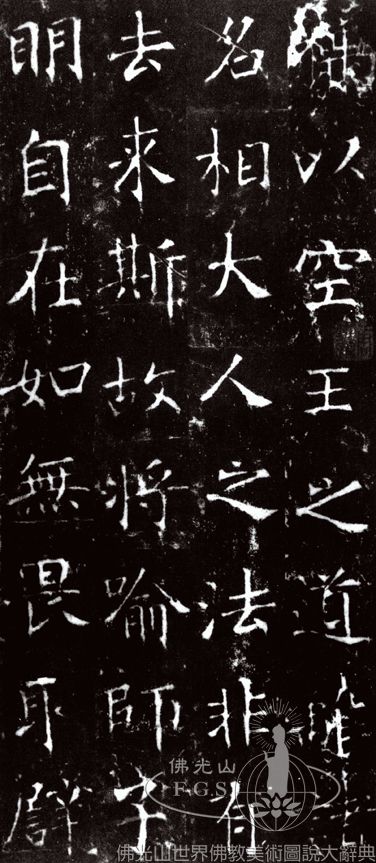 以空王之道離諸
名相大人之法非有
去來斯故將喻師子
明自在如無畏取譬
佛光山
F.G.S.
佛光山世界佛教美術圖說大辭典